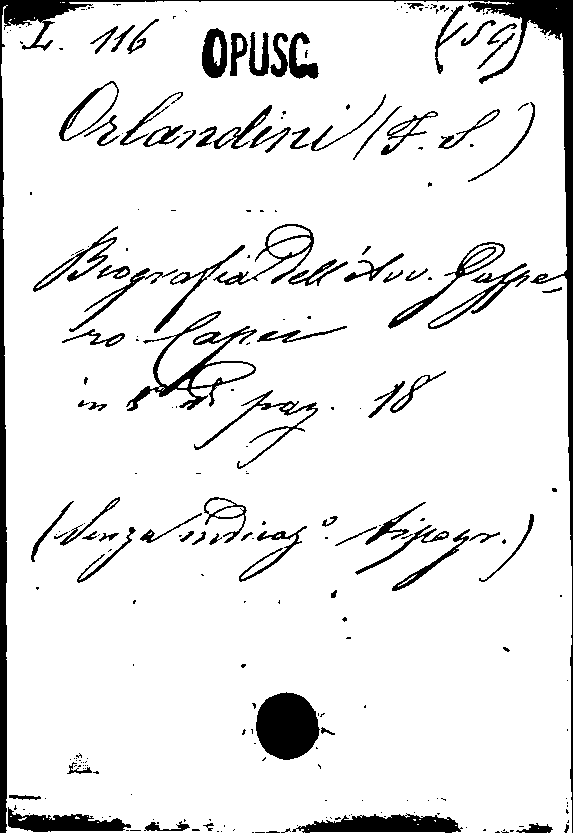 L. 116 OPUSC. (59)
Orlandini (F. S.)
Biografia dell'Avv. Gaspe-
ro Capei
in 8° di pag. 18
(Senza indicaz.° tipogr.)